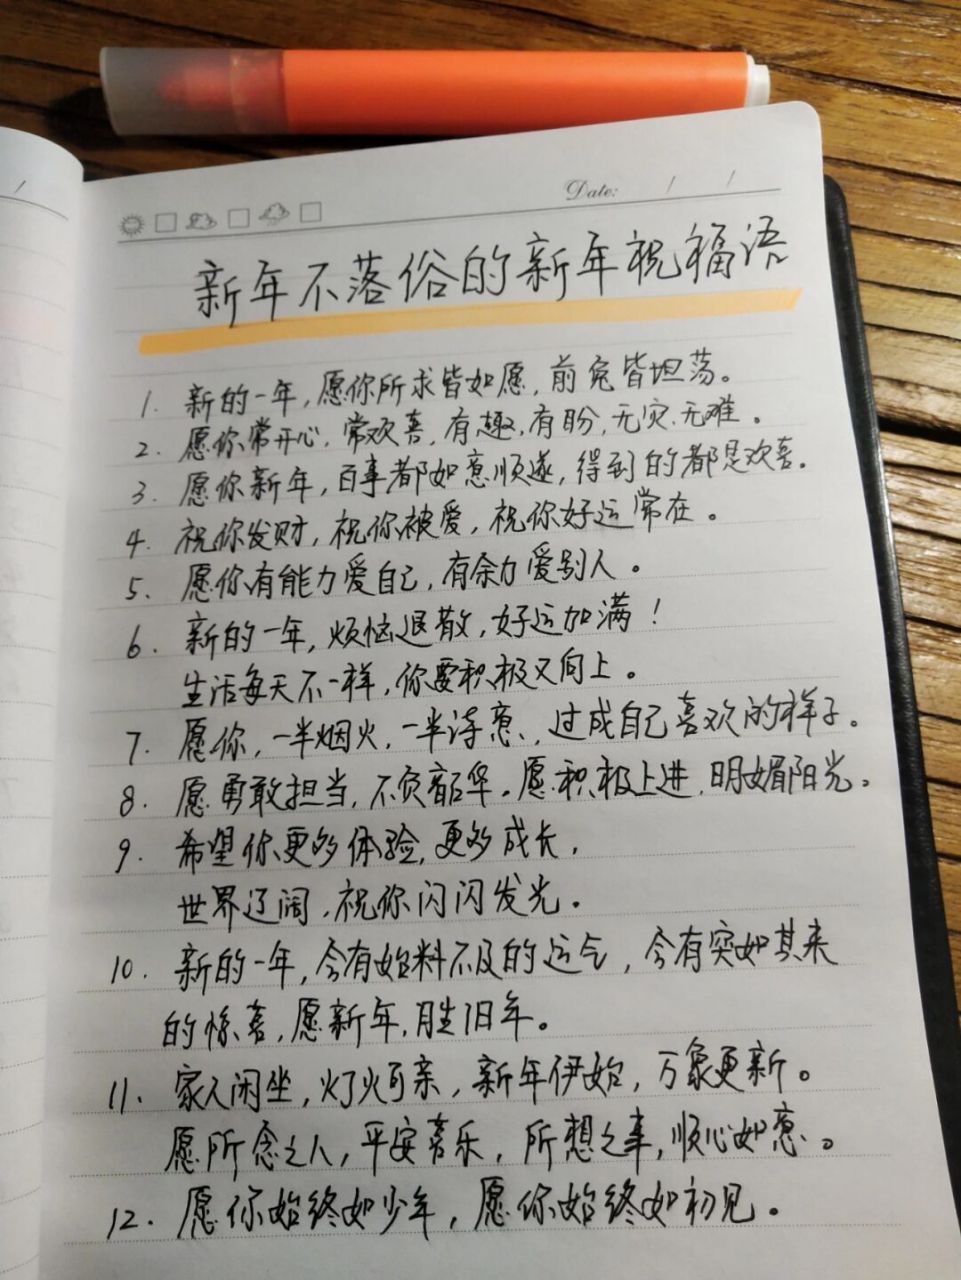 Date: / /
新年不落俗的新年祝福语
1. 新的一年,愿你所求皆如愿,前兔皆坦荡。
2. 愿你常开心,常欢喜,有趣,有盼,无灾,无难。
3. 愿你新年,百事都如意顺遂,得到的都是欢喜。
4. 祝你发财,祝你被爱,祝你好运常在。
5. 愿你有能力爱自己,有余力爱别人。
6. 新的一年,烦恼退散,好运加满!
生活每天不一样,你要积极又向上。
7. 愿你,一半烟火,一半诗意,过成自己喜欢的样子。
8. 愿勇敢担当,不负韶华。愿积极上进,明媚阳光。
9. 希望你更多体验,更多成长,
世界辽阔,祝你闪闪发光。
10. 新的一年,会有始料不及的运气,会有突如其来
的惊喜,愿新年,胜旧年。
11. 家人闲坐,灯火可亲,新年伊始,万象更新。
愿所念之人,平安喜乐,所想之事,顺心如意。
12. 愿你始终如少年,愿你始终如初见。